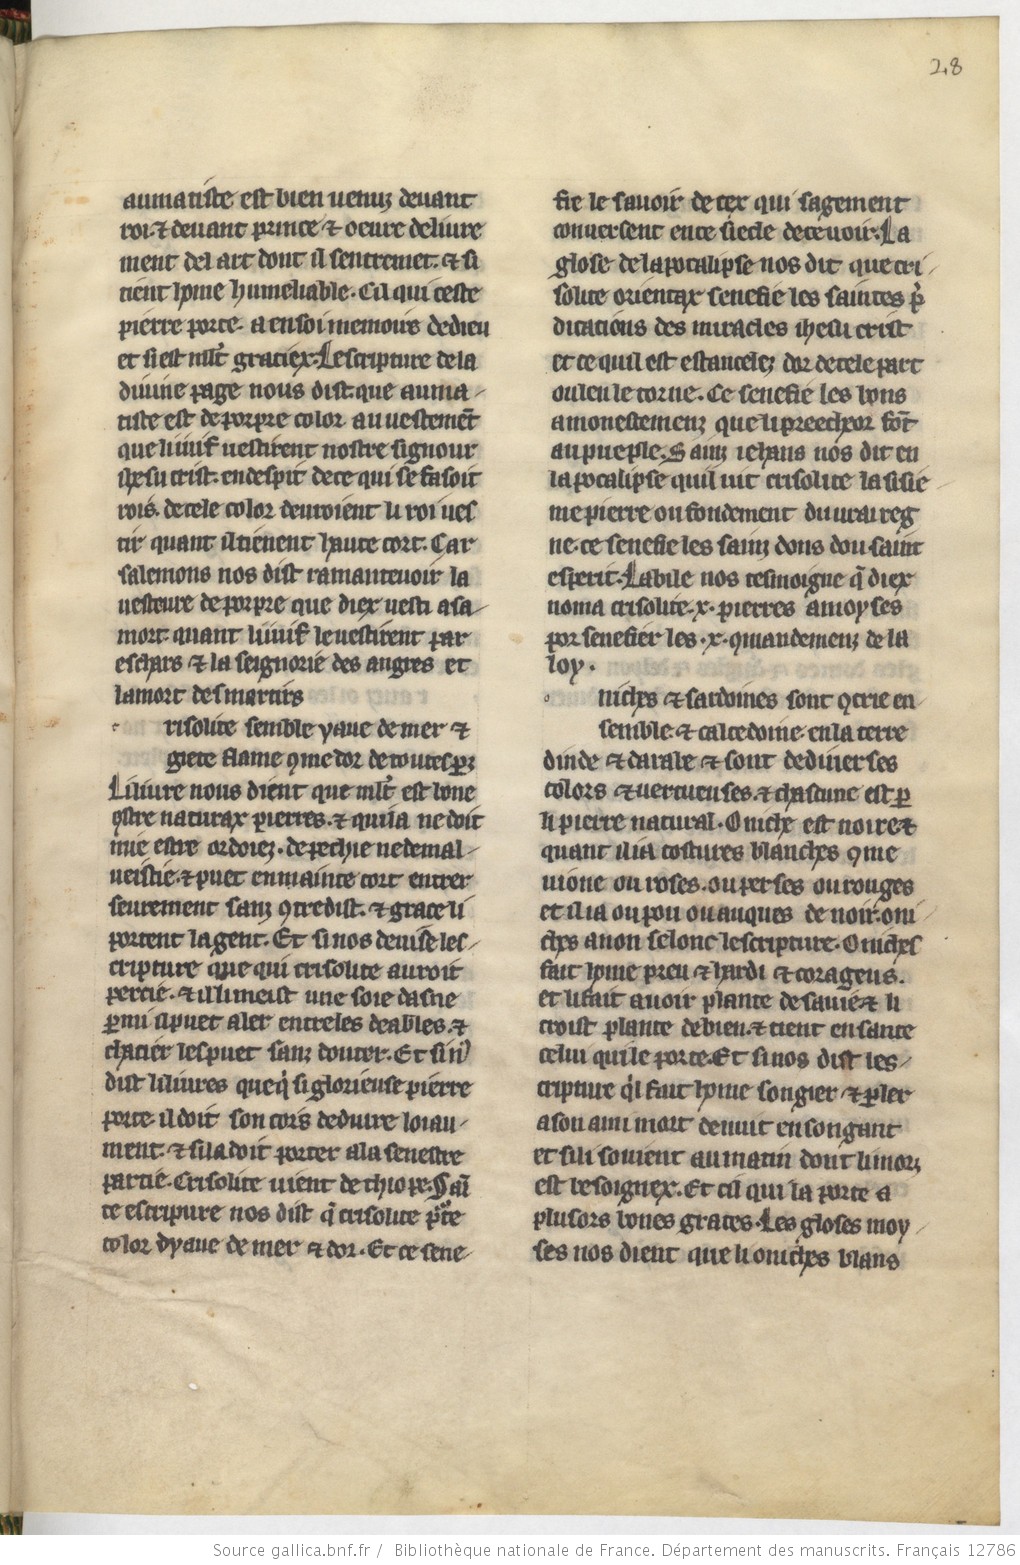 28
aumatiste est bien uenuz deuant
roi. ⁊ deuant prince ⁊ oeure deliure
ment del art dont il sentremet. ⁊ si
tient home humeliable. Cil qui ceste
pierre porte. a en soi memoire de dieu
et si est mlt̄ graciex. Lescripture de la
diuine page nous dist. que auma-
tiste est de porpre color au uestemēt
que li iuif uestirent nostre signour
ihesu crist. en despit de ce qui se fasoit
rois. de cele color deuroient li roi ues
tir quant il tienent haute cort. Car
salemons nos dist ramanteuoir la
uesteure de porpre que diex uesti a sa-
mort. quant li iuif le uestirent par
eschars ⁊ la seignorie des angres et
la mort des martirs
c risolite semble yaue de mer ⁊
giete flame 9me dor de toutes pz
Li liure nous dient que mlt̄ est bone
9tre naturax pierres. ⁊ qui la ne doit
mie estre ordoiez. de pechie ne de mal-
ueistie. ⁊ puet en mainte cort entrer
seurement sanz 9tredist. ⁊ grace li
portent la gent. Et si nos deuise les-
cripture que qui crisolite auroit
percie. ⁊ il li meist une soie dasne
p̄mi il puet aler entre les deables. ⁊
chacier les puet sanz douter. Et si n9
dist li liures que q̄ si glorieuse pierre
porte. il doit son cors deduire loiau-
ment. ⁊ si la doit porter a la senestre
partie. Crisolite uient de thiope. Sai
te escripure nos dist q̄ crisolite porte
color dyaue de mer ⁊ dor. Et ce sene-
fie le sauoir de cex qui sagement
conuersent en ce siecle deceuoir. La
glose de lapocalipse nos dit que cri-
solite orientax senefie les saintes p̄
dications des miracles ihesu crist
et ce quil est estancelez dor de cele part
ou len le torne. Ce senefie les bons
amonestemenz que li preechor fōt
au pueple. Sainz iehans nos dit en
lapocalipse quil uit crisolite la sisie-
me pierre ou fondement du urai reg
ne. ce senefie les sainz dons dou saint
esperit. La bile nos tesmoigne q̄ diex
noma crisolite. x. pierres a moyses
por senefier les .x. 9mandemenz de la
loy.
o niches ⁊ sardoines sont 9crie en
semble. ⁊ calcedoine en la terre
dinde ⁊ darabe ⁊ sont de diuerses
colors ⁊ uertueuses. ⁊ chascune est p̄
li pierre natural. Oniche est noire ⁊
quant il i a costures blanches 9me
uione ou roses. ou perses ou rouges
et il i a ou pou ou auques de noir. oni-
ches a non selonc lescripture. Oniches
fait home preu ⁊ hardi ⁊ corageus.
et li fait auoir plante de sauie. ⁊ li
croist plante de bien. ⁊ tient en sante
celui qui le porte. Et si nos dist les-
cripture q̄l fait home songier ⁊ p̄ler
a son ami mort de nuit en songant
et si li souient au matin dont li morz
est besoignex. Et cil qui la porte a
plusors bones graces. Les gloses moy-
ses nos dient que li oniches blans
Source gallica.bnf.fr / Bibliothèque nationale de France. Département des manuscrits. Français 12786